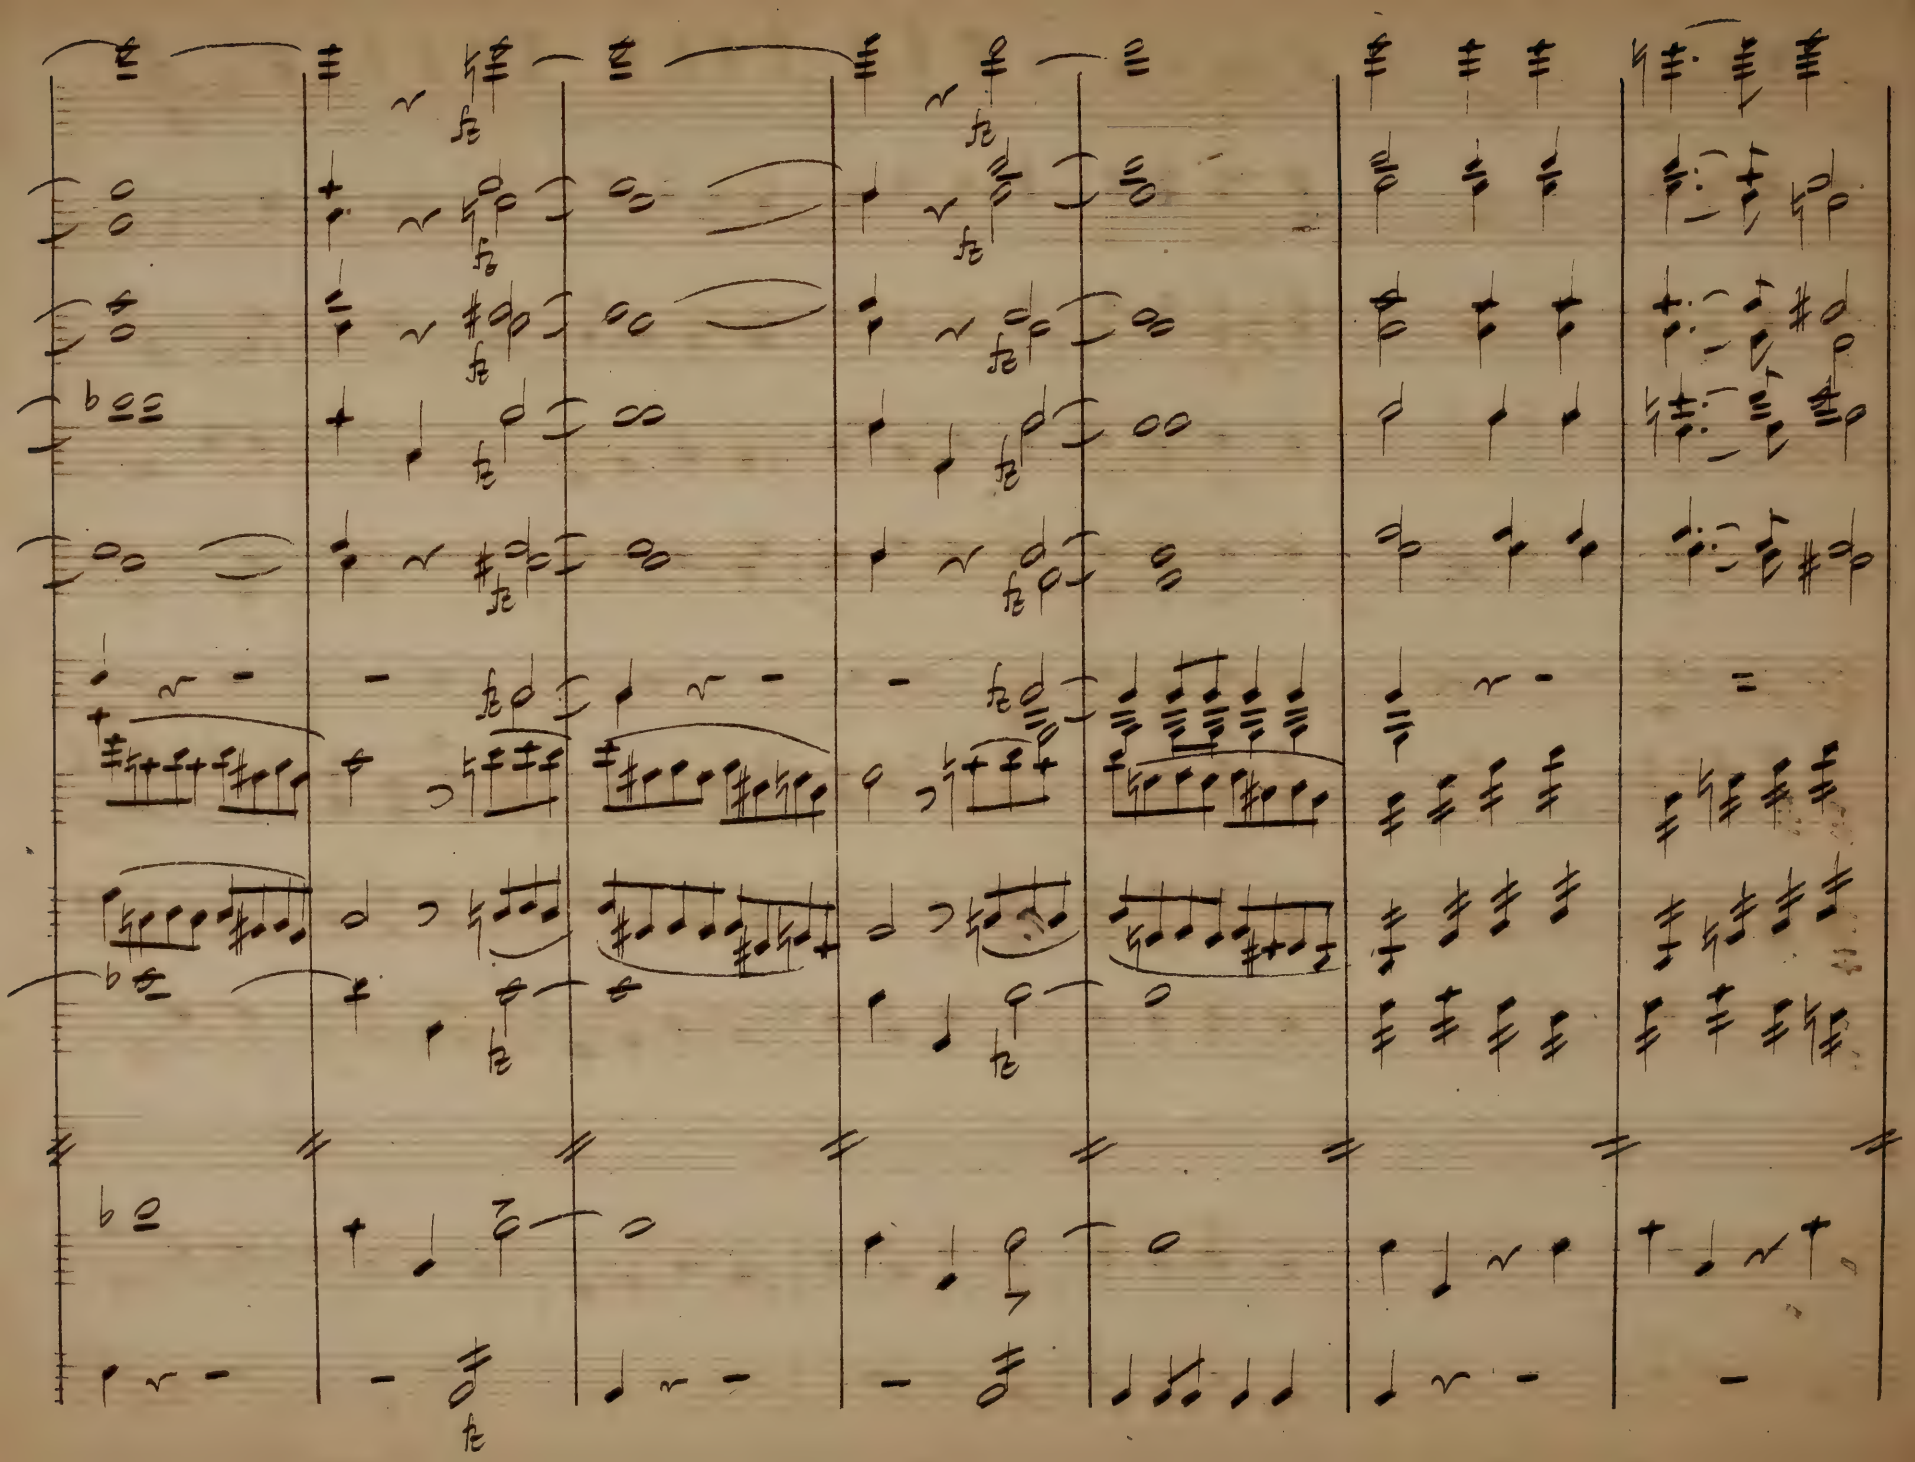 fz fz
fz fz
fz fz
fz fz
fz fz
fz fz
fz fz
fz